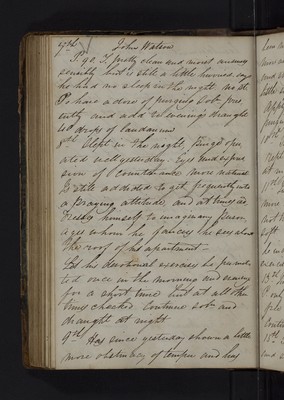 7th John Watson
P. 90. T. pretty clean and moist answers
sensibly but is still a little hurried says
he had no sleep in the night. no St.
To have a dose of purging Salt
and add to evenings draught
40 drops of laudanum
8th Slept in the night, Purge oper
ated well yesterday. Eyes and expres
sion of countenance more natural
Is still addicted to get frequently into
a praying attitude, and at times ad
dresses himself to imaginary person
ages whom he fancies he sees about
the roof of his apartment
Let his devotional exercises be permit
ted once in the morning and evening
for a short time but at all other
times checked. Continue
draught at night
9th Has since yesterday shown a little
more obstinacy of temper and has